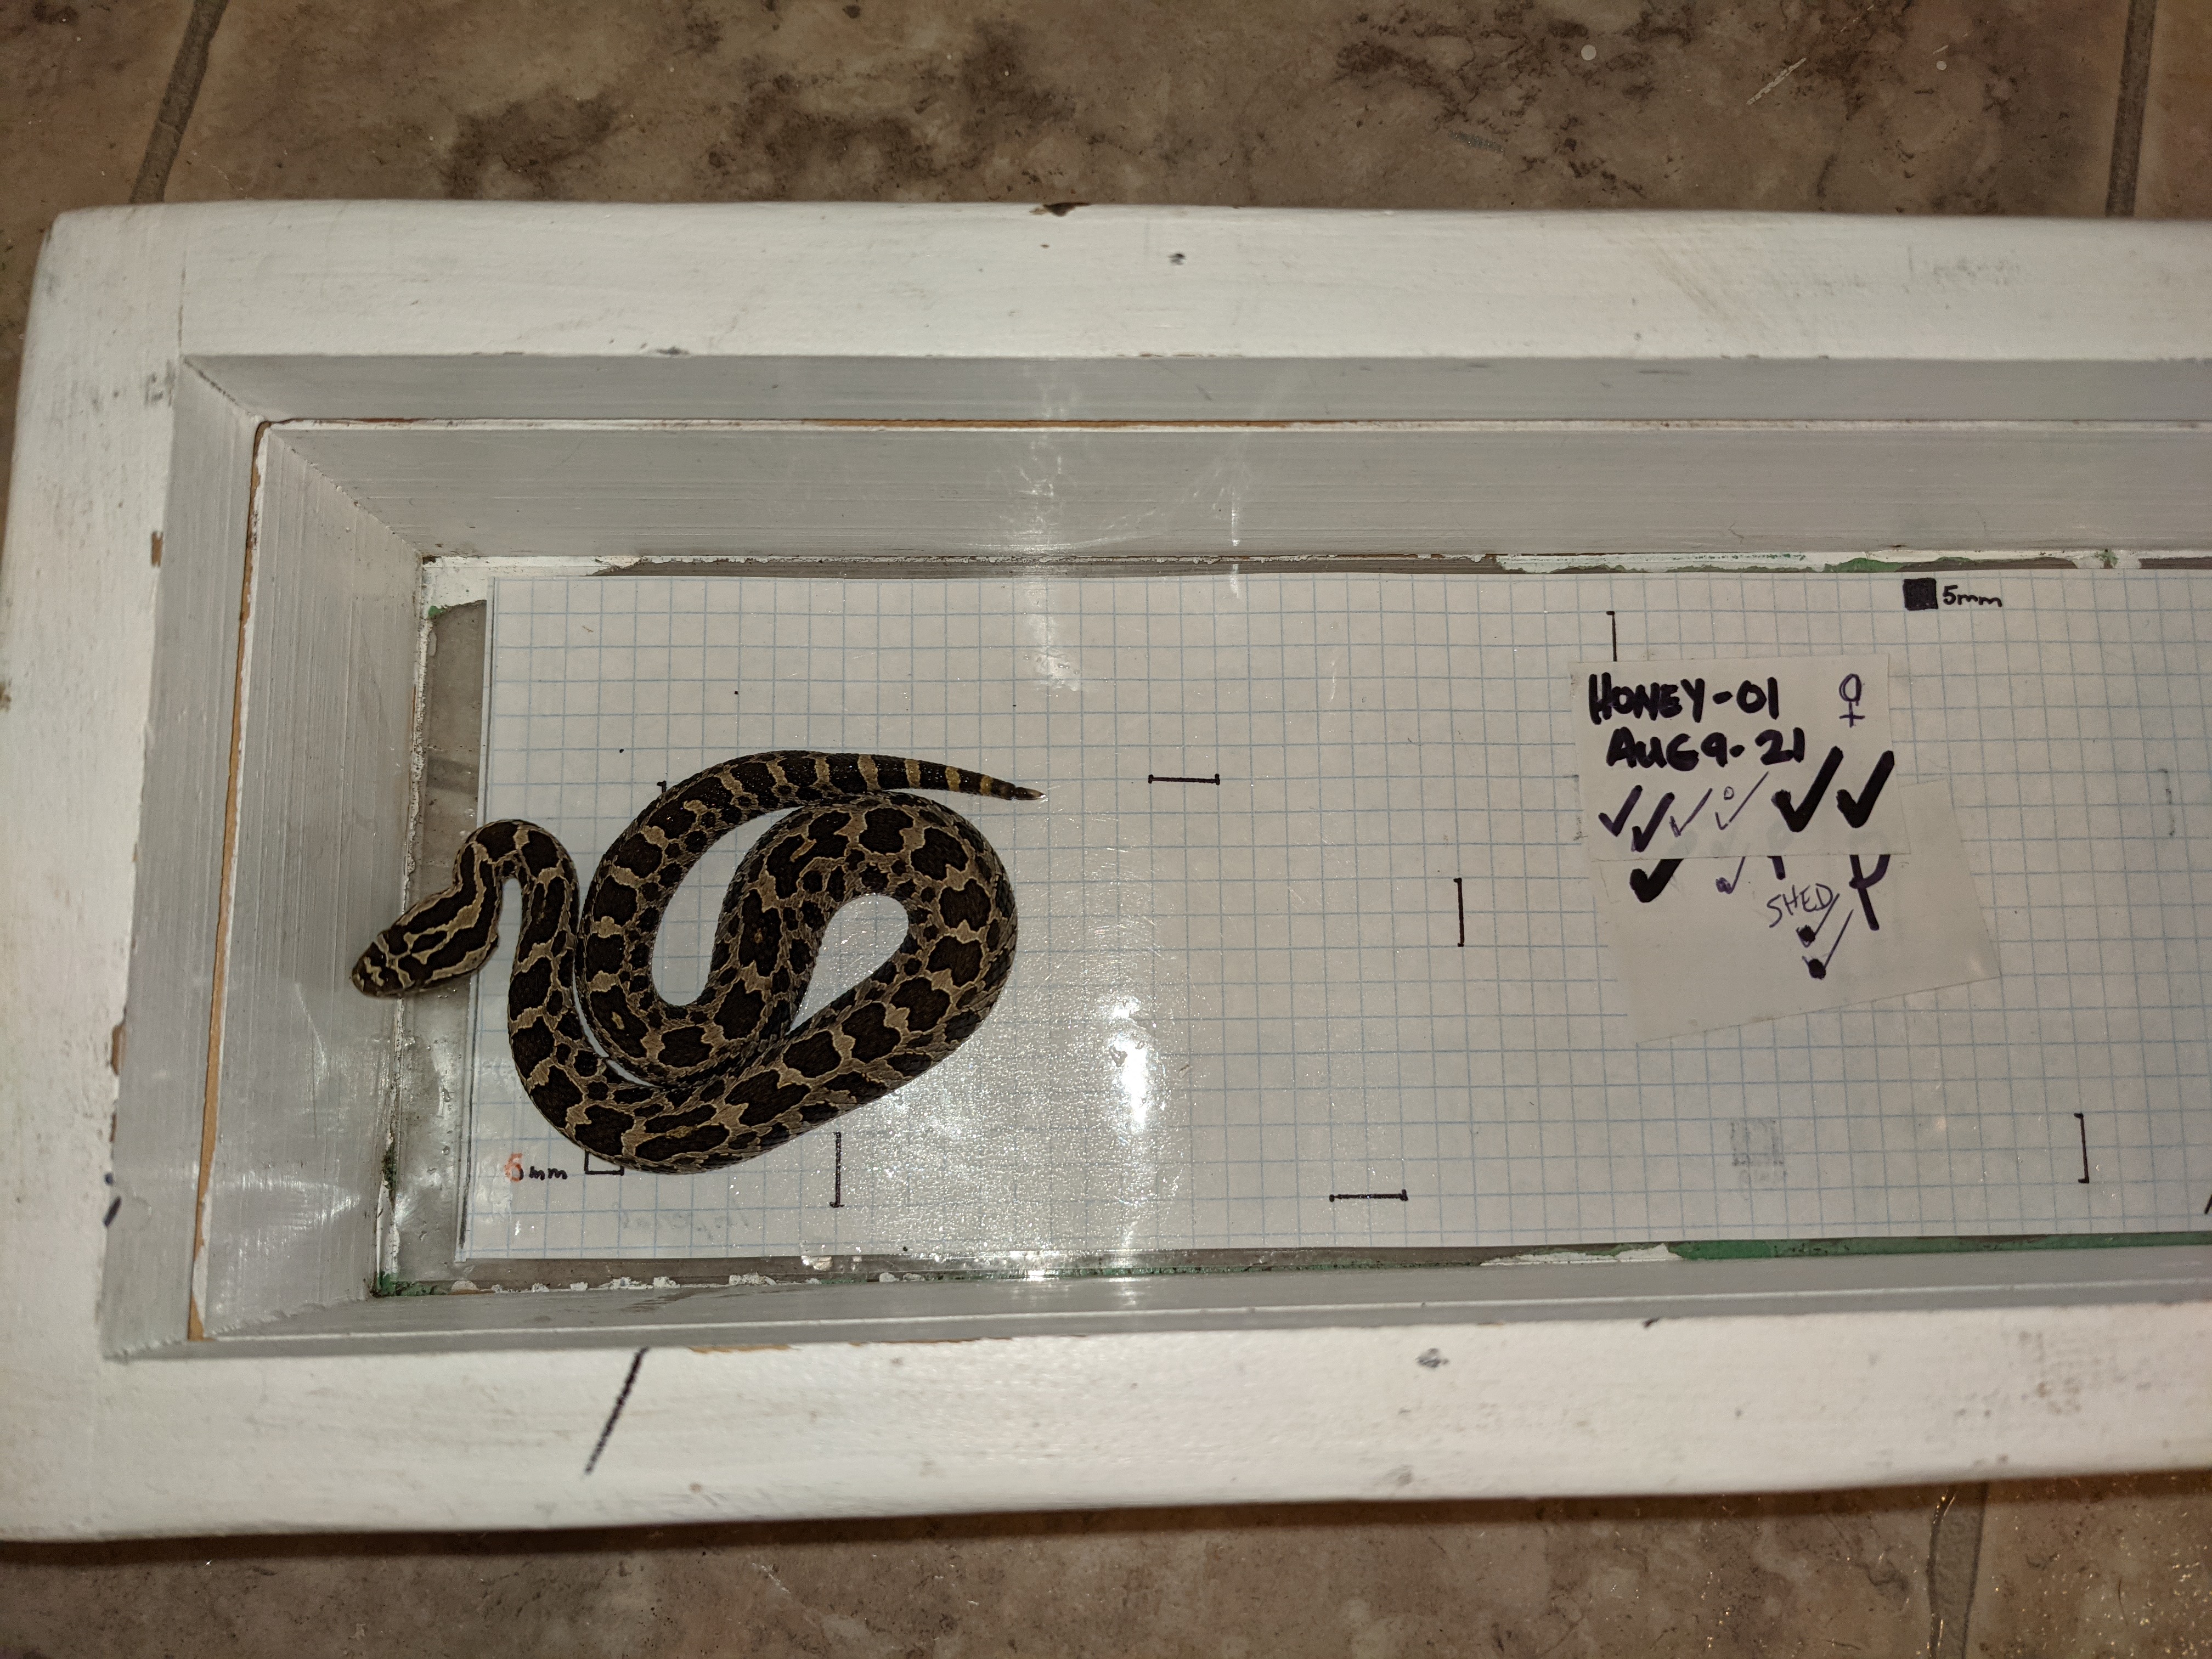 5mm
HONEY-01 ♀
AUG 9-21
✓ ✓ ✓ ✓ ✓ ✓
✓ ✓
SHED
✓
✓
5mm